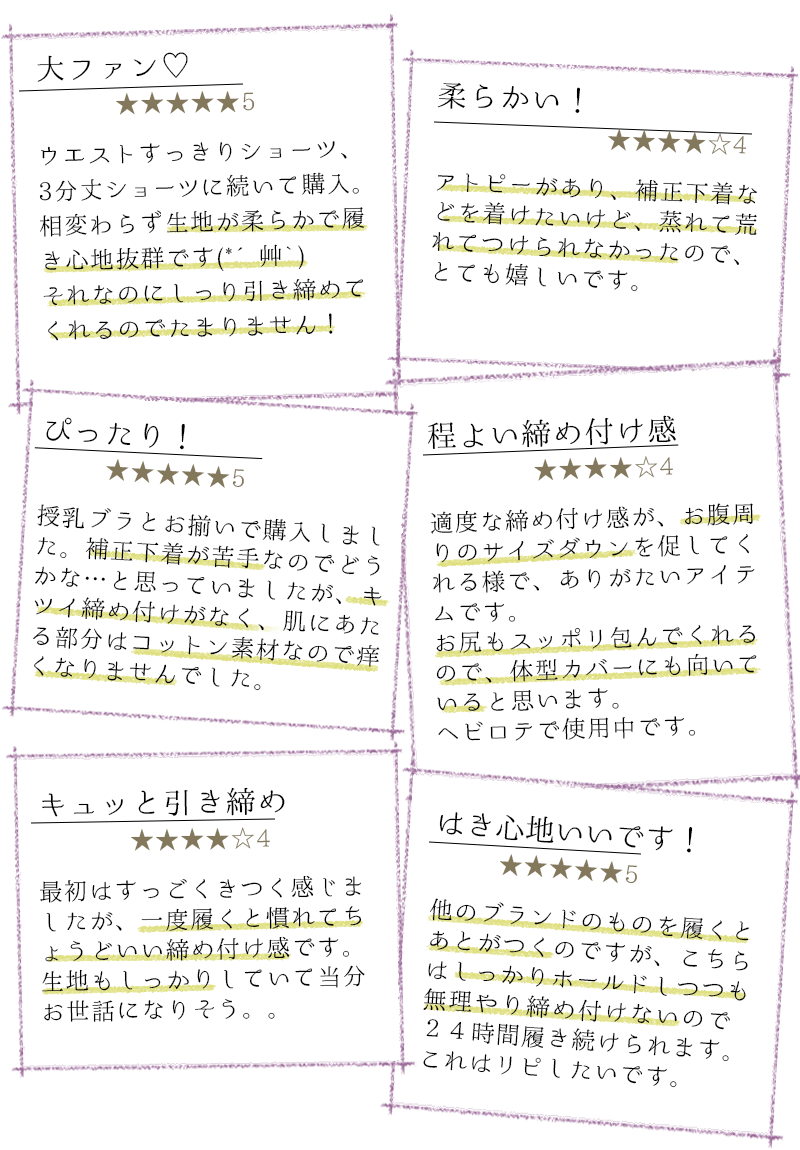 大ファン♡
★★★★★5
ウエストすっきりショーツ、
3分丈ショーツに続いて購入。
相変わらず生地が柔らかで履
き心地抜群です(*´艸`)
それなのにしっり引き締めて
くれるのでたまりません！
柔らかい！
★★★★☆4
アトピーがあり、補正下着な
どを着けたいけど、蒸れて荒
れてつけられなかったので、
とても嬉しいです。
ぴったり！
★★★★★5
授乳ブラとお揃いで購入しまし
た。補正下着が苦手なのでどう
かな…と思っていましたが、キ
ツイ締め付けがなく、肌にあた
る部分はコットン素材なので痒
くなりませんでした。
程よい締め付け感
★★★★☆4
適度な締め付け感が、お腹周
りのサイズダウンを促してく
れる様で、ありがたいアイテ
ムです。
お尻もスッポリ包んでくれる
ので、体型カバーにも向いて
いると思います。
ヘビロテで使用中です。
キュッと引き締め
★★★★☆4
最初はすっごくきつく感じま
したが、一度履くと慣れてち
ょうどいい締め付け感です。
生地もしっかりしていて当分
お世話になりそう。。
はき心地いいです！
★★★★★5
他のブランドのものを履くと
あとがつくのですが、こちら
はしっかりホールドしつつも
無理やり締め付けないので
２４時間履き続けられます。
これはリピしたいです。